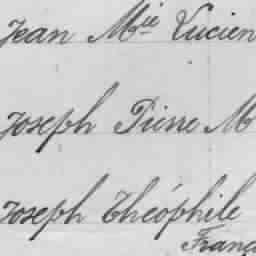 Jean Mie Lucien
Joseph Pierre M
Joseph Théophile
Franç